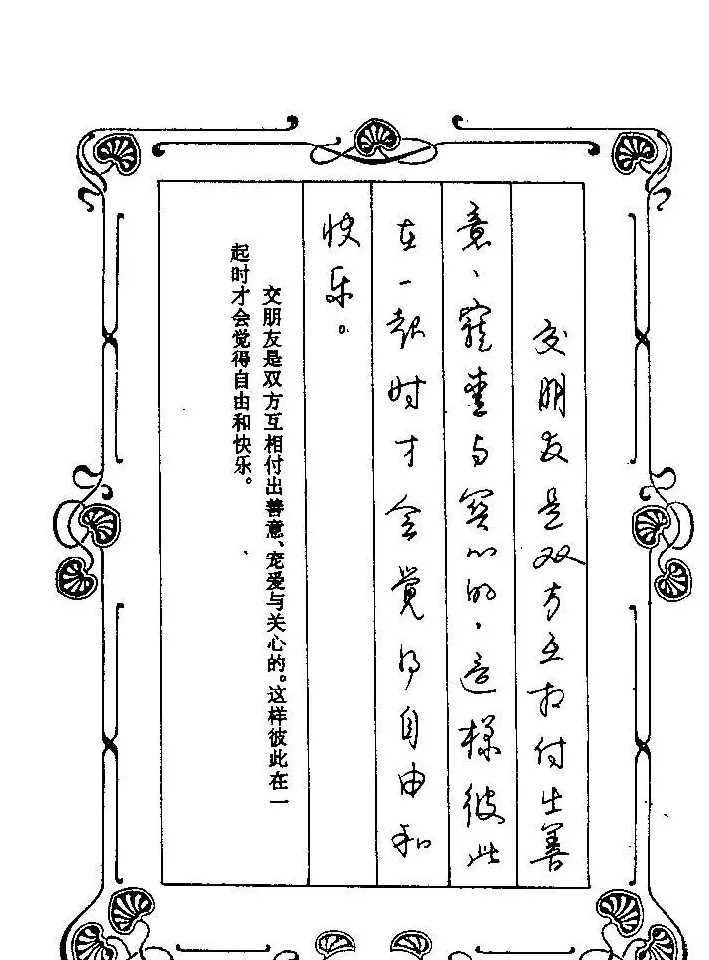 交朋友是双方互相付出善
意、寵爱与関心的.這樣彼此
在一起时才会覺得自由和
快乐。
交朋友是双方互相付出善意、宠爱与关心的。这样彼此在一
起时才会觉得自由和快乐。